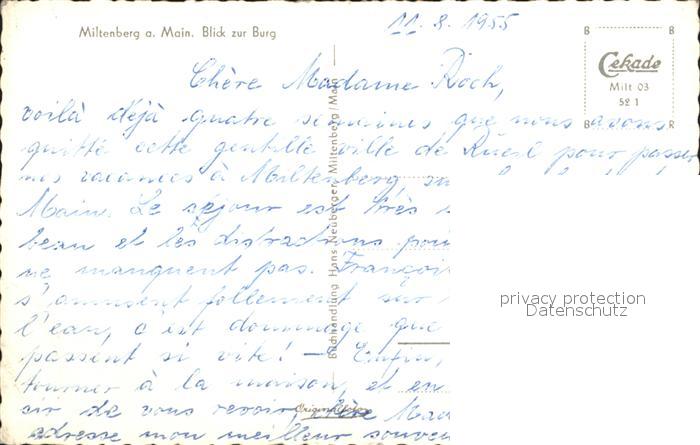 Miltenberg a. Main. Blick zur Burg
11. 8. 1955
B B
Cekade
Milt 03
52 1
B R
Chère Madame Roch,
voilà déjà quatre semaines que nous avons
quitté cette gentille ville de Rueil pour passer
nos vacances à Miltenberg
Main. Le séjour est très
beau et les distractions
ne manquent pas.
s'amusent follement sur
l'eau, c'est dommage que
passent si vite! — Enfin,
tourner à la maison, et en
sir de vous revoir chère
adresse mon meilleur
Buchhandlung Hans Neuberger, Miltenberg/Main
privacy protection
Datenschutz